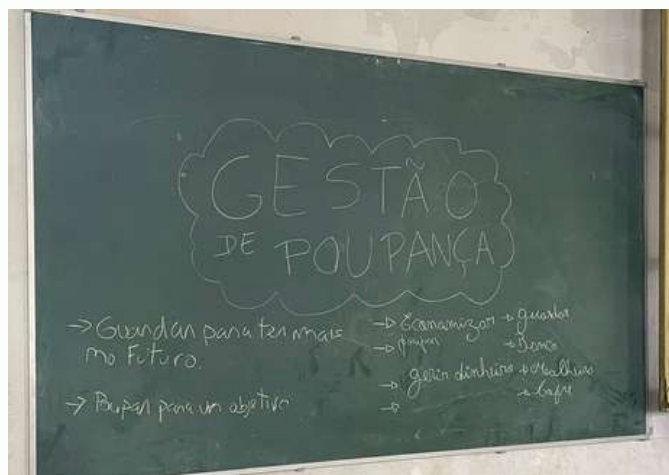 GESTÃO
DE POUPANÇA
→ Guardar para ter mais
no Futuro.
→ Poupar para um objetivo
→ Economizar → guardar
→ poupar → Banco
→ gerir dinheiro → Mealheiro
→ → Cofre